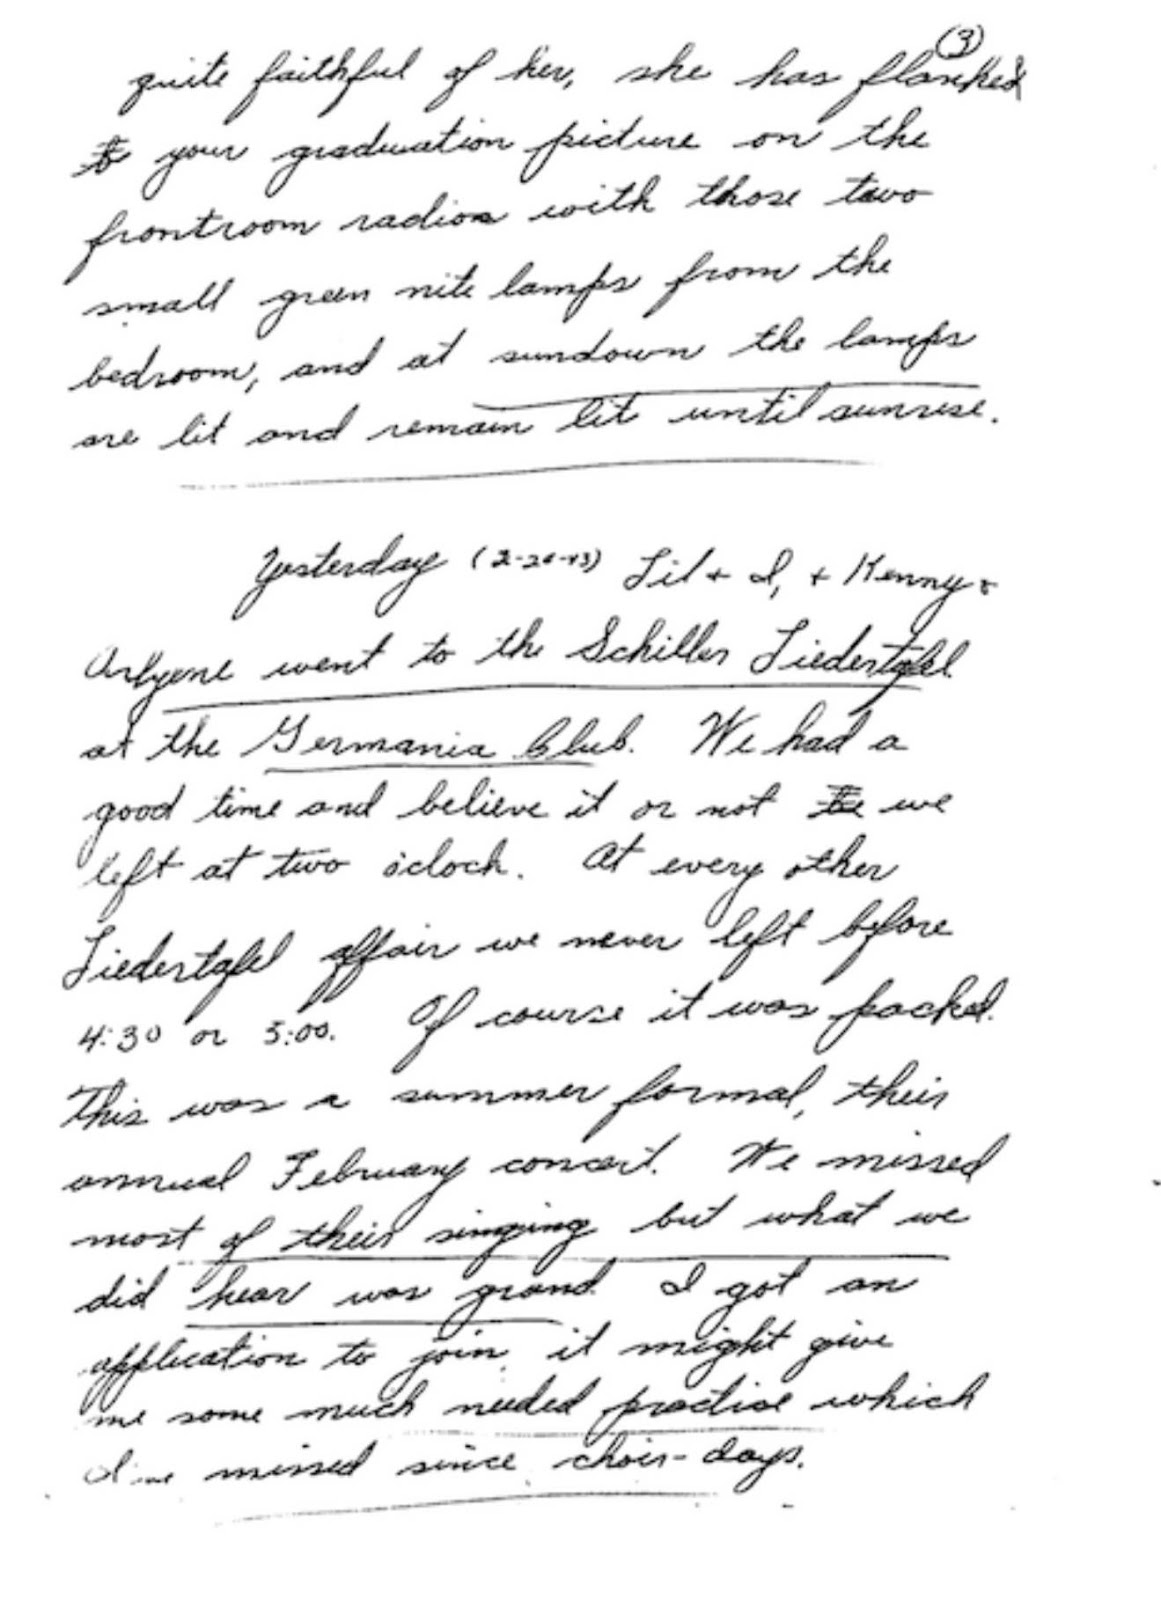 (3)
quite faithful of her, she has flanked
to your graduation picture on the
frontroom radios with those two
small green nite lamps from the
bedroom, and at sundown the lamps
are lit and remain lit until sunrise.
Yesterday (2-20-43) Lil + I, + Kenny &
Arlyene went to the Schiller Liedertafel
at the Germania Club. We had a
good time and believe it or not we
left at two o'clock. At every other
Liedertafel affair we never left before
4:30 or 5:00. Of course it was packed.
This was a summer formal, their
annual February concert. We missed
most of their singing but what we
did hear was grand. I got an
application to join, it might give
me some much needed practise which
missed since choir-days.